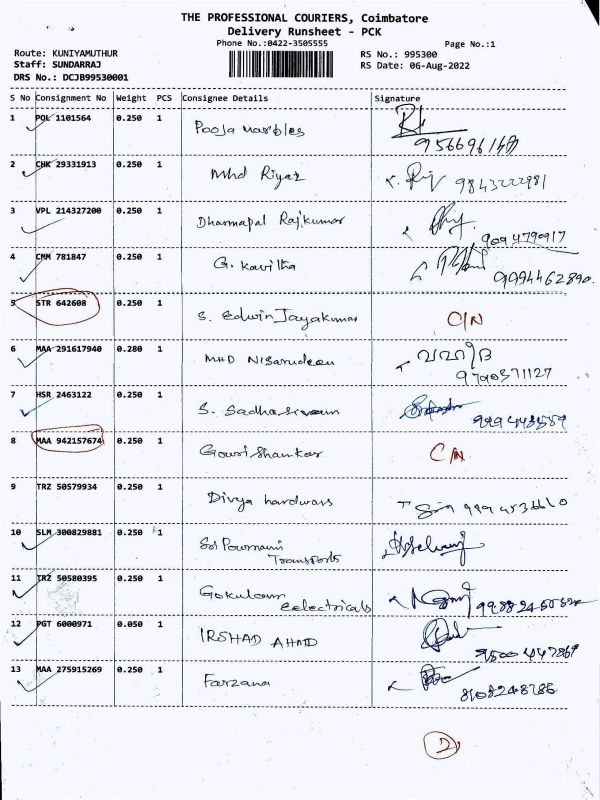 THE PROFESSIONAL COURIERS, Coimbatore
Delivery Runsheet - PCK
Phone No.:0422-3505555
Page No.:1
Route: KUNIYAMUTHUR
RS No.: 995300
Staff: SUNDARRAJ
RS Date: 06-Aug-2022
DRS No.: DCJB99530001
S No Consignment No Weight PCS Consignee Details Signature
1 POL 1101564 0.250 1 Pooja marbles
2 CHK 29331913 0.250 1 Mhd Riyaz 9843222981
3 VPL 214327200 0.250 1 Dharmapal Rajkumar 9094790917
4 CMM 781847 0.250 1 G. Kavitha 9994462890.
5 STR 642608 0.250 1 S. Edwin Jayakumar C/N
6 MAA 291617940 0.280 1 MHD Nisarudeen 9790371127
7 HSR 2463122 0.250 1 S. Sadhasivam
8 MAA 942157674 0.250 1 Gowrishankar C/N
9 TRZ 50579934 0.250 1 Divya hardwars
10 SLM 300829881 0.250 1 Sri Pournami
Transports
11 TRZ 50580395 0.250 1 Gokulam
eelectricals
12 PGT 6000971 0.050 1 IRSHAD AHMD 9500447869
13 MAA 275915269 0.250 1 Farzana 8108248785
2